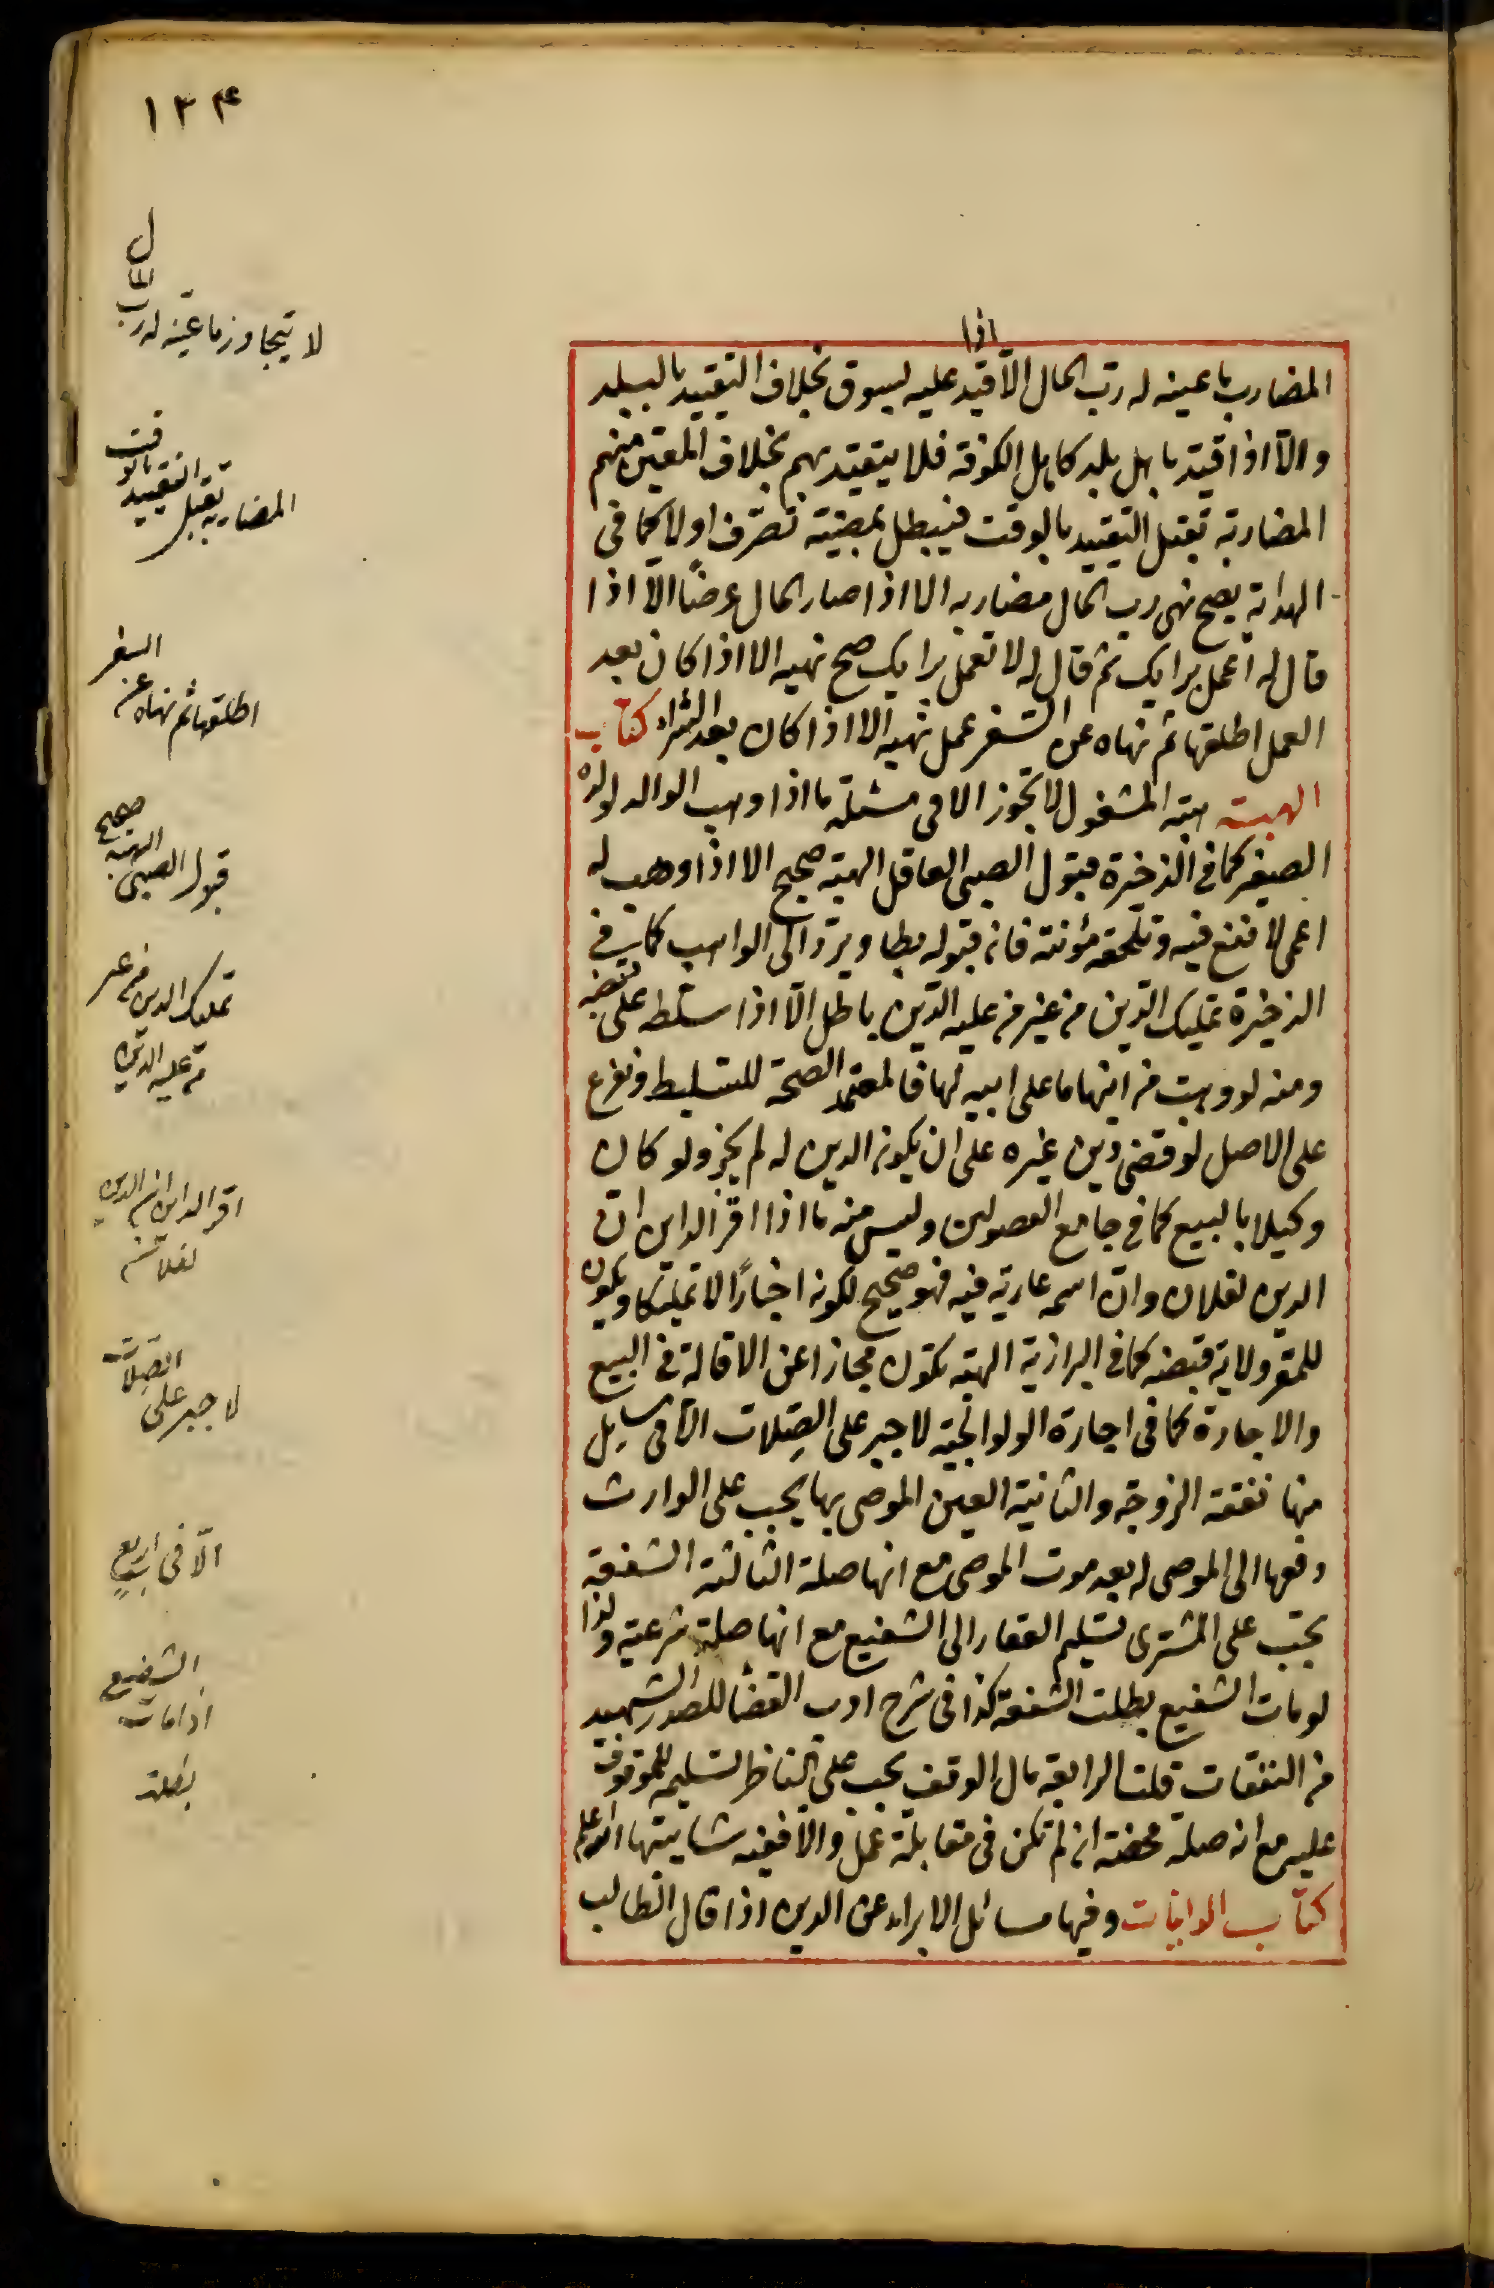 ١٣۴
اذا
المضارب ما عينه له رب المال الا قيد عليه بسوق بخلاف التقييد بالبلد
والا اذا قيد باهل بلد كاهل الكوفة فلا يتقيد بهم بخلاف المعين منهم
المضاربة تقبل التقييد بالوقت فيبطل بمضيته تصرف اولا كما في
الهداية يصح نهى رب المال مضاربه الا اذا صار المال عرضا الا اذا
قال له اعمل برايك ثم قال له لا تعمل برايك صح نهيه الا اذا كان بعد
العمل اطلقها ثم نهاه عن السفر عمل نهيه الا اذا كان بعد الشراء كتاب
الهبة هبة المشغول لا تجوز الا في مسئلة ما اذا وهب الوالد لولده
الصغير كما في الذخيرة قبول الصبي العاقل الهبة صحيح الا اذا وهب له
اعمى لا نفع فيه وتلحقه مؤنته فان قبوله بطا ويرد الى الواهب كما في
الذخيرة تمليك الدين من غير من عليه الدين باطل الا اذا سلطه على قبضه
ومنه لو وهبت من ابنها ما على ابيه لها فالمعتمد الصحة للتسليط وتفرع
على الاصل لو قضى دين غيره على ان يكون الدين له لم يجز ولو كان
وكيلا بالبيع كما في جامع الفصولين وليس منه ما اذا اقر الداين ان
الدين لفلان وان اسمه عارية فيه فهو صحيح لكونه اخبارا لا تمليكا ويكون
للمقر ولاية قبضه كما في البزازية الهبة تكون مجازا عن الاقالة في البيع
والاجارة كما في اجارة الولوالجية لا جبر على الصلات الا في مسايل
منها نفقة الزوجة والثانية العين الموصى بها يجب على الوارث
دفعها الى الموصى له بعد موت الموصى مع انها صلة الثالثة الشفعة
يجب على المشترى تسليم العقار الى الشفيع مع انها صلة شرعية ولذا
لو مات الشفيع بطلت الشفعة كذا في شرح ادب القضا للصدر الشهيد
من النفقات قلت الرابعة مال الوقف يجب على الناظر تسليمه للموقوف
عليه مع انه صلة محضة ان لم تكن في مقابلة عمل والا ففيه شايبتها الله اعلم
كتاب المداينات وفيها مسائل الابراء عن الدين اذا قال الطالب
لا يتجاوز ما عينه له رب
المال
المضاربة تقبل
التقييد بالوقت
اطلقها ثم نهاه عن
السفر
قبول الصبي
الهبة صحيح
تمليك الدين من غير
من عليه الدين
اقر الداين ان الدين
لفلان
لا جبر على
الصلات
الا في اربع
الشفيع
اذا مات
بطلت